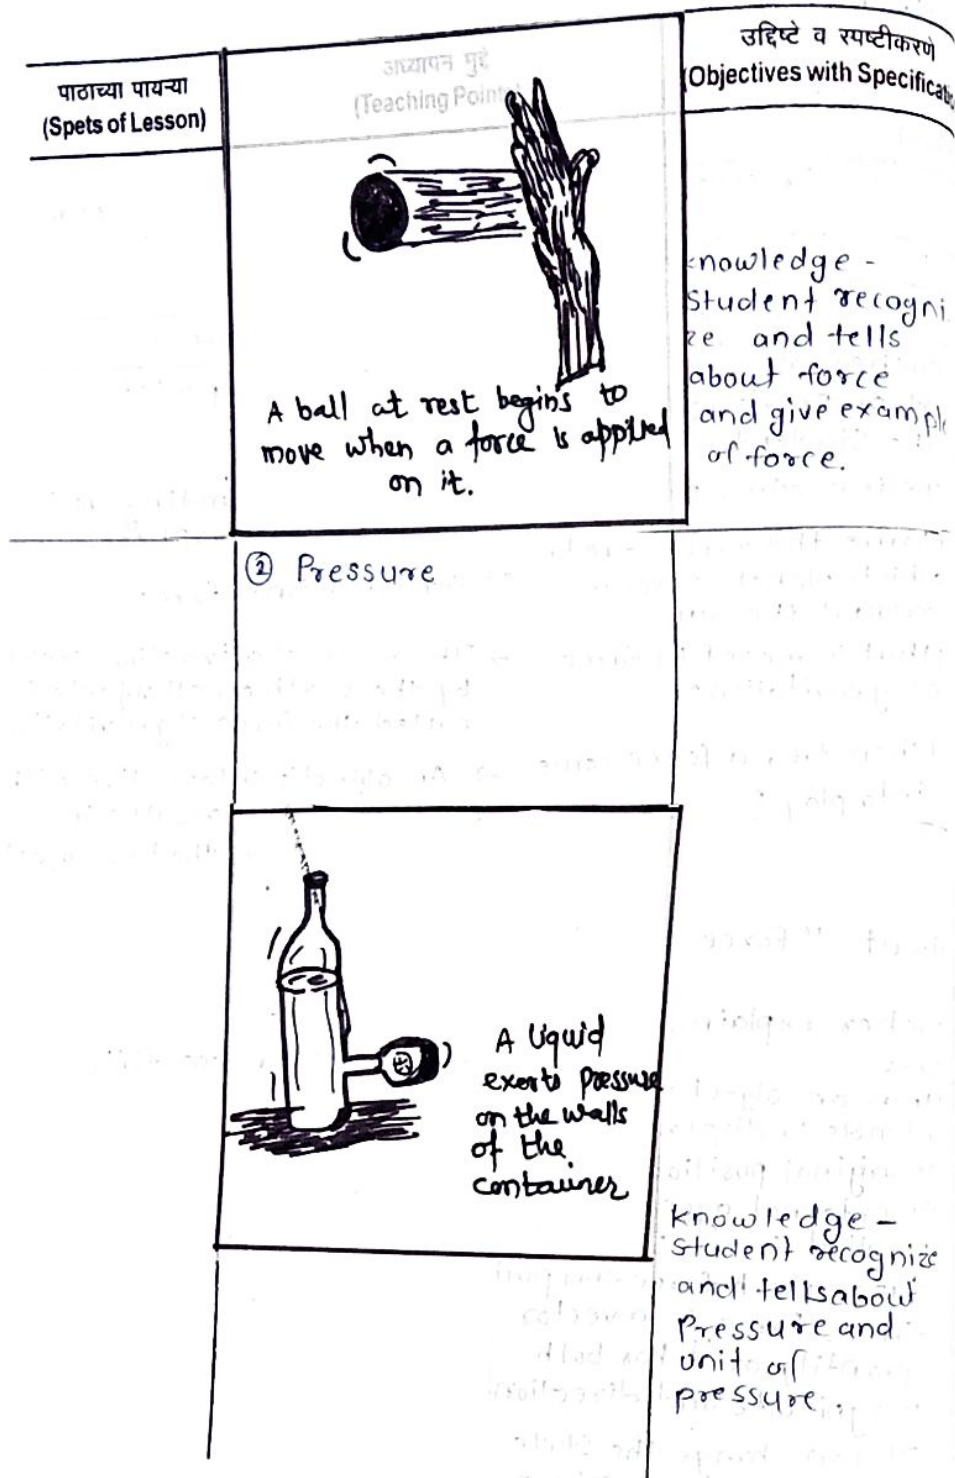 पाठाच्या पायऱ्या
(Spets of Lesson)
अध्यापन मुद्दे
(Teaching Points
उद्दिष्टे व स्पष्टीकरणे
(Objectives with Specificatio
A ball at rest begins to
move when a force is applied
on it.
knowledge -
Student recogni
ze and tells
about force
and give example
of force.
② Pressure
A liquid
exerts pressure
on the walls
of the
container
knowledge -
Student recognize
and tells about
Pressure and
unit of
pressure.